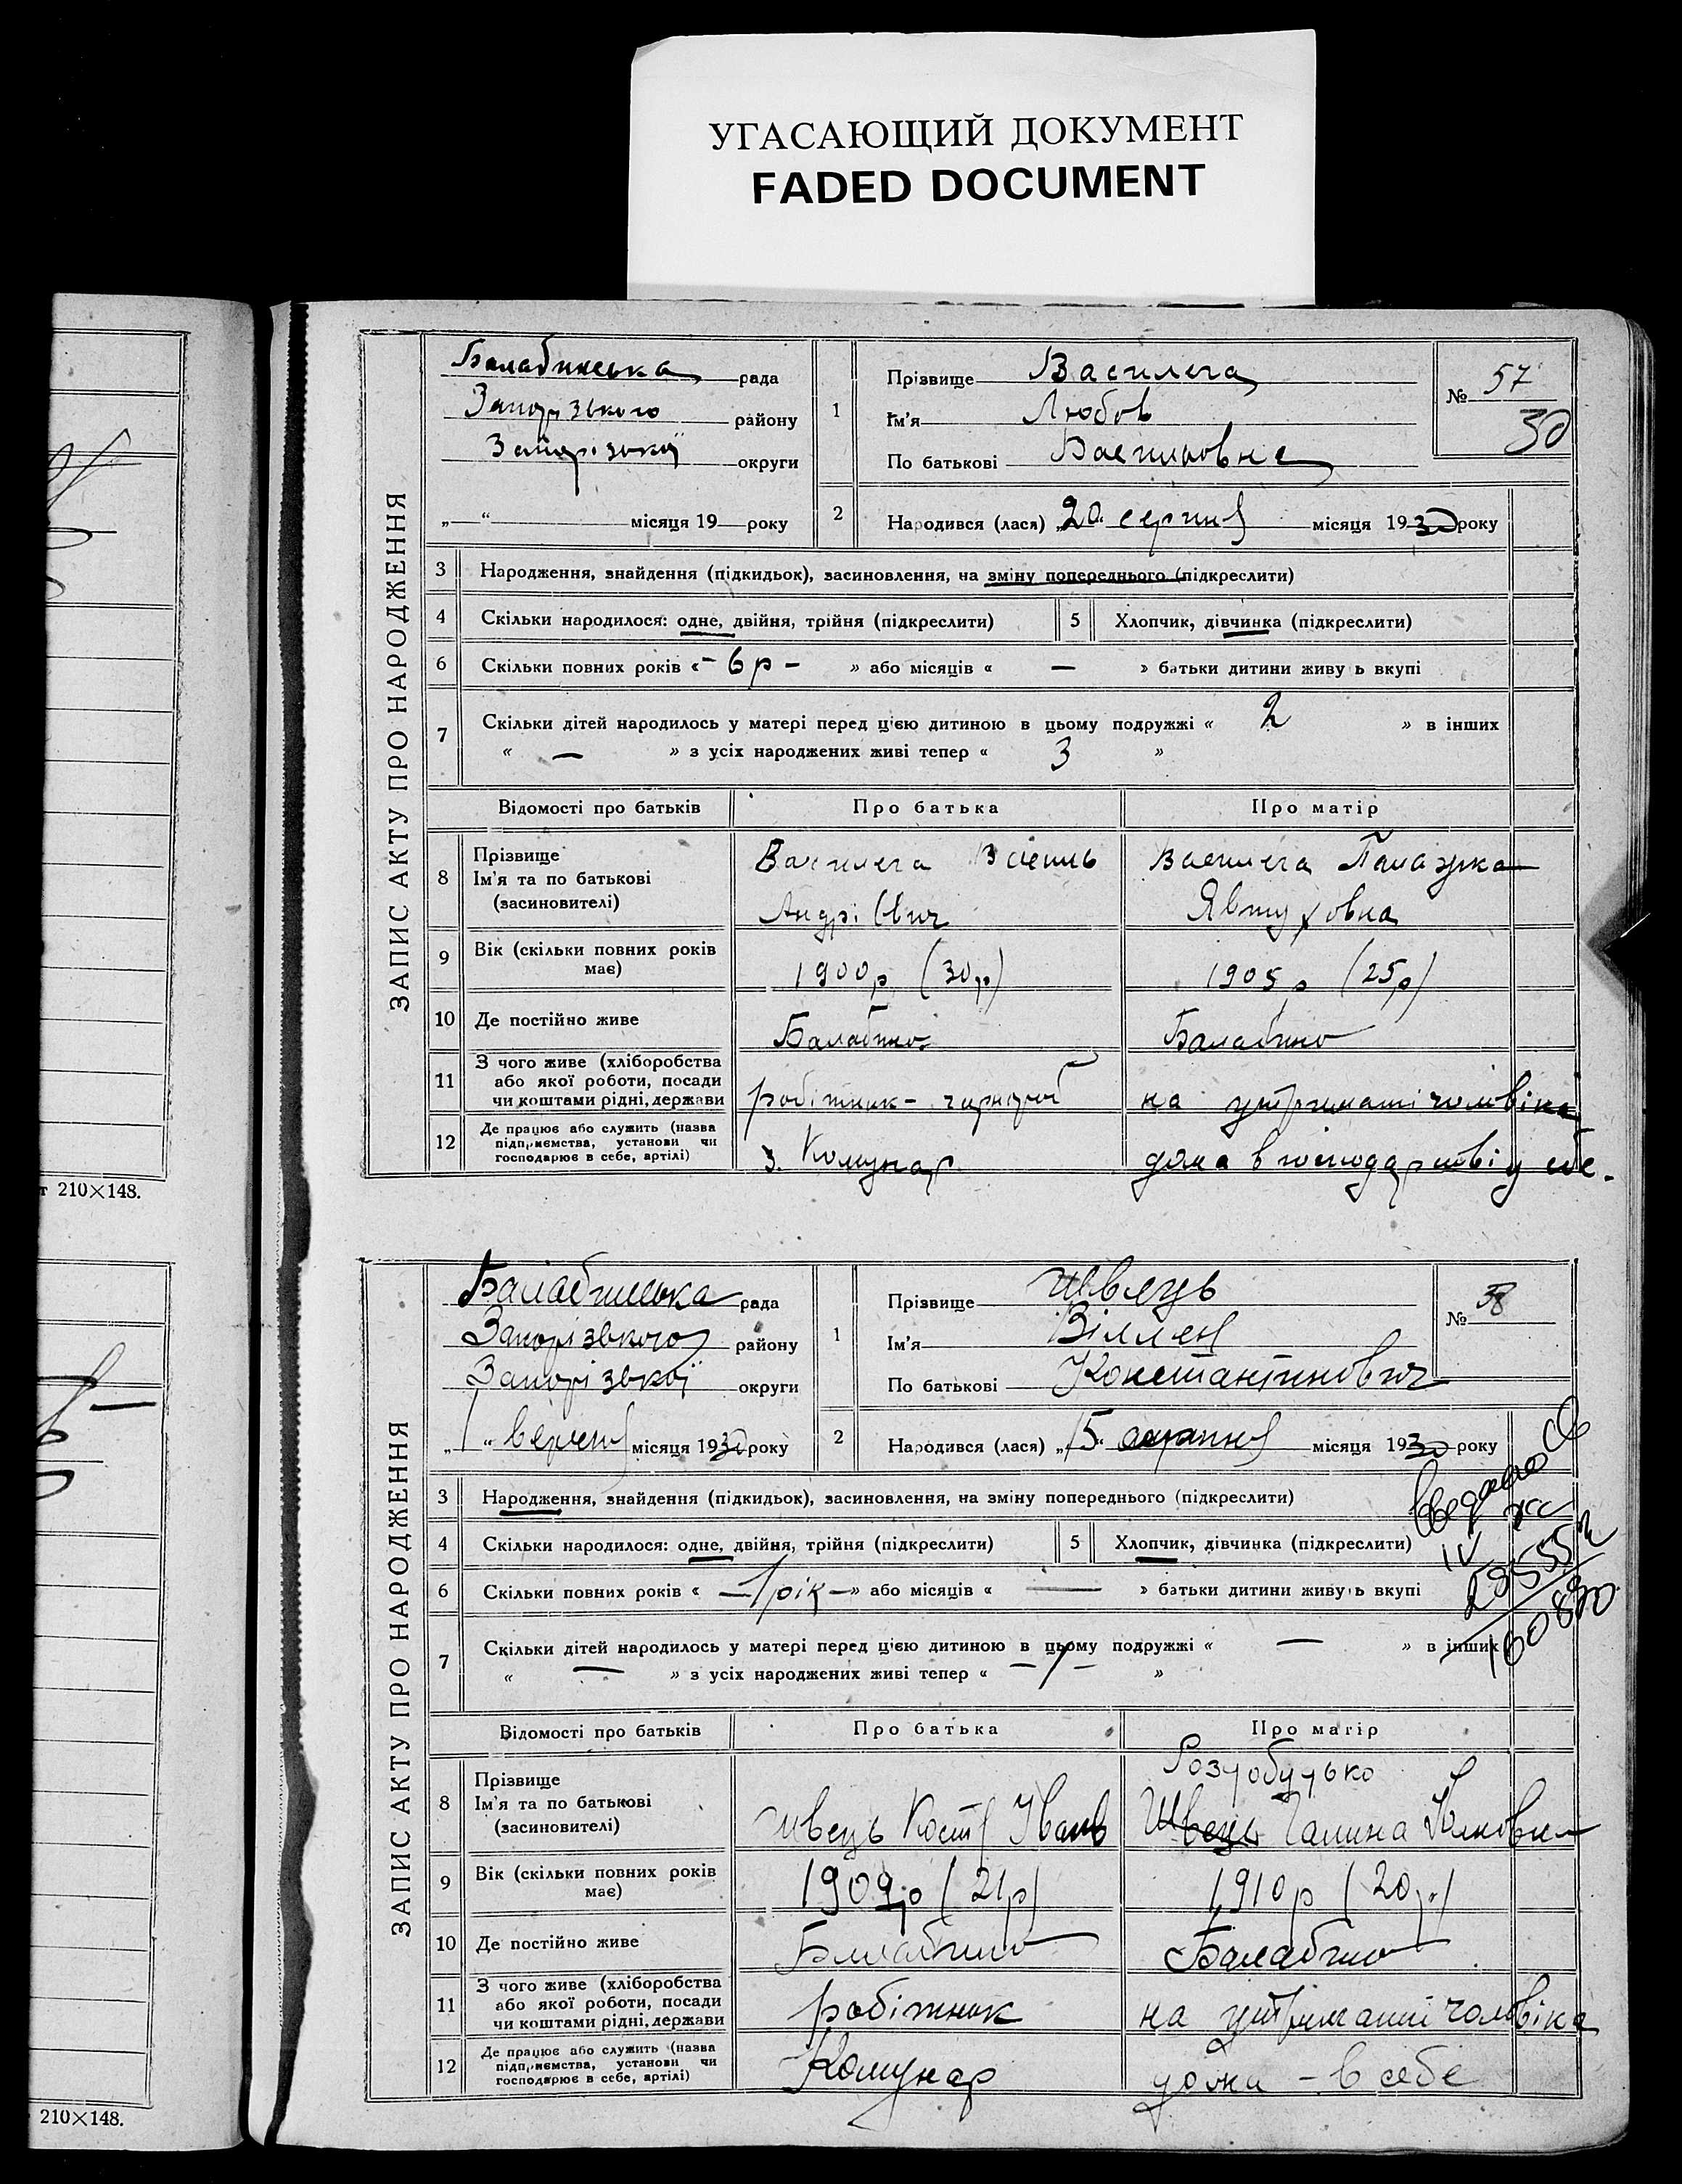 УГАСАЮЩИЙ ДОКУМЕНТ
FADED DOCUMENT
ЗАПИС АКТУ ПРО НАРОДЖЕННЯ
Балабинська рада
Запорізького району
Запорізької округи
„ “ місяця 19 року
1
Прізвище Василега
Ім'я Любов
По батькові Васильовна
№ 57
30
2
Народився (лася) „20“ серпня місяця 1930 року
3 Народження, знайдення (підкидьок), засиновлення, на зміну попереднього (підкреслити)
4 Скільки народилося: одне, двійня, трійня (підкреслити)
5 Хлопчик, дівчинка (підкреслити)
6 Скільки повних років «- 6 р -» або місяців « — » батьки дитини живу ь вкупі
7 Скільки дітей народилось у матері перед цією дитиною в цьому подружжі « 2 » в інших
« — » з усіх народжених живі тепер « 3 »
Відомості про батьків Про батька Про матір
8 Прізвище Ім'я та по батькові (засиновителі)
Василега Василь
Андрієвич
Василега Палажка
Явтуховна
9 Вік (скільки повних років має)
1900 р (30 р)
1905 р (25 р)
10 Де постійно живе
Балабино
Балабино
11 З чого живе (хліборобства або якої роботи, посади чи коштами рідні, держави
робітник - чорнороб
на утриманні чоловіка
12 Де працює або служить (назва підприємства, установи чи господарює в себе, артілі)
з. Комунар
дома в господарстві у себе.
т 210×148.
ЗАПИС АКТУ ПРО НАРОДЖЕННЯ
Балабинська рада
Запорізького району
Запорізької округи
„1“ вересня місяця 1930 року
1
Прізвище Швець
Ім'я Віллен
По батькові Константинович
№ 58
2
Народився (лася) „15“ серпня місяця 1930 року
3 Народження, знайдення (підкидьок), засиновлення, на зміну попереднього (підкреслити)
4 Скільки народилося: одне, двійня, трійня (підкреслити)
5 Хлопчик, дівчинка (підкреслити)
6 Скільки повних років « — 1 рік — » або місяців « — » батьки дитини живу ь вкупі
7 Скільки дітей народилось у матері перед цією дитиною в цьому подружжі « — » в інших
« — » з усіх народжених живі тепер « - 1 - »
Відомості про батьків Про батька Про матір
8 Прізвище Ім'я та по батькові (засиновителі)
Швець Кость Іванов
Швець Галина
9 Вік (скільки повних років має)
1909 р (21 р)
1910 р (20 р)
10 Де постійно живе
Балабино
Балабино
11 З чого живе (хліборобства або якої роботи, посади чи коштами рідні, держави
робітник
на утриманні чоловіка
12 Де працює або служить (назва підприємства, установи чи господарює в себе, артілі)
Комунар
дома - в себе
210×148.